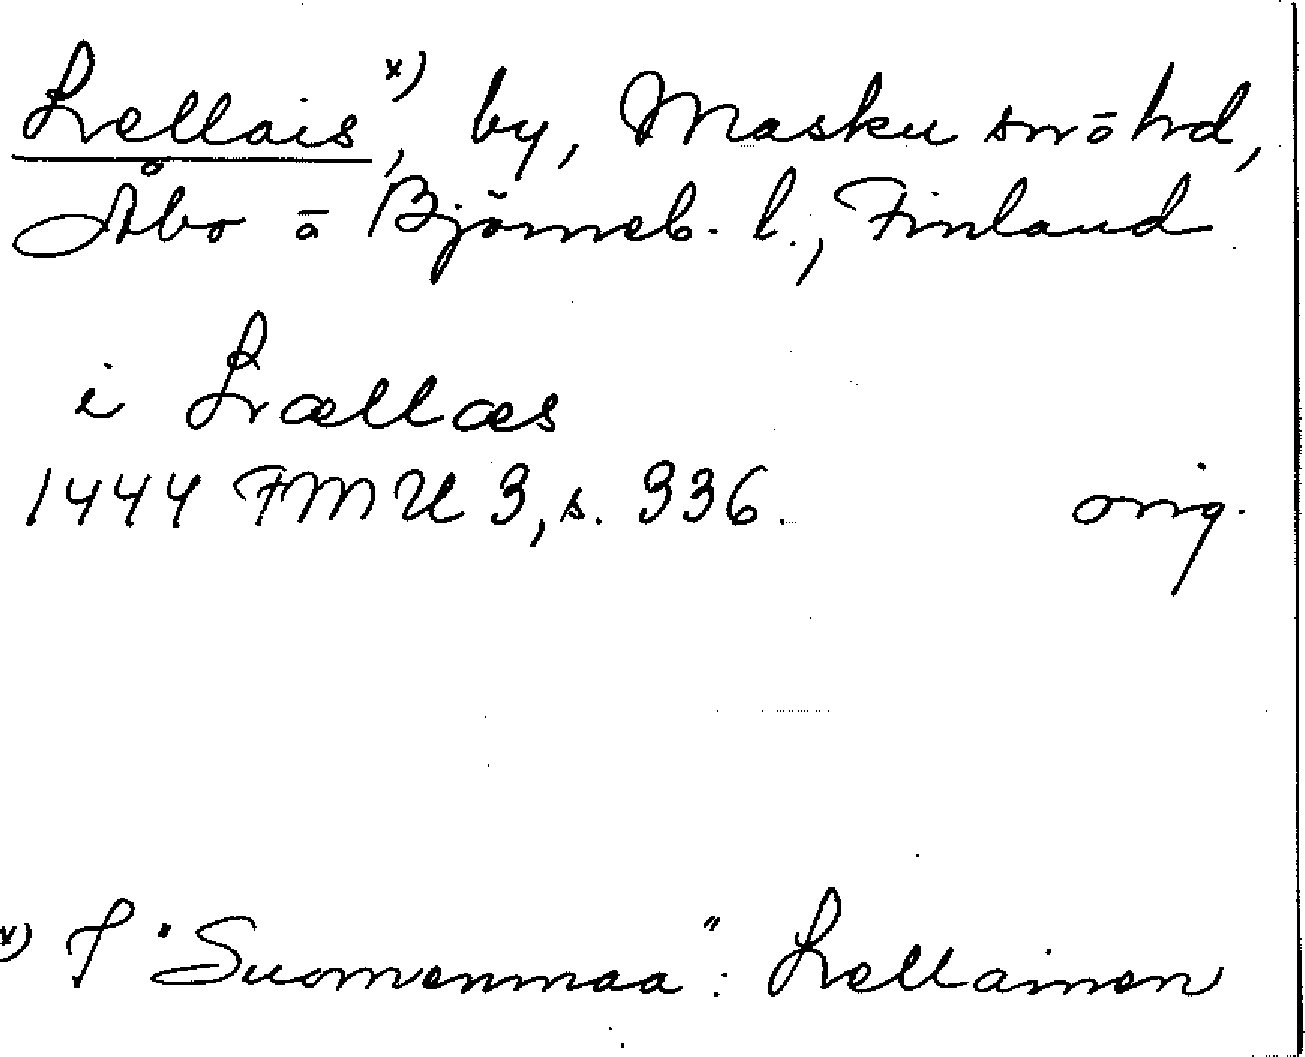 Lellais x), by, Masku sn o hd,
Åbo o Björneb. l., Finland
i Lællæs
1444 FMU 3, s. 336. orig.
x) I "Suomenmaa": Lellainen